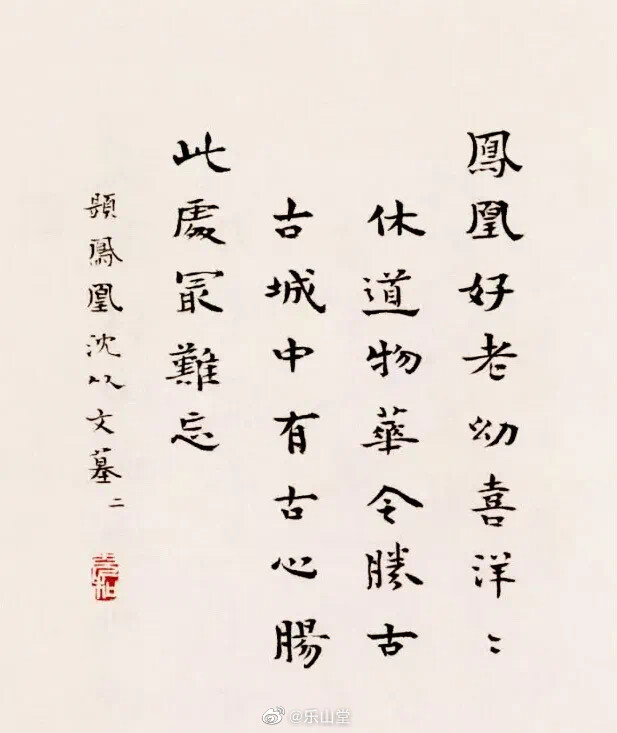 鳳凰好老幼喜洋〻
休道物華今勝古
古城中有古心腸
此處冣難忘
題鳳凰沈从文墓二
@乐山堂